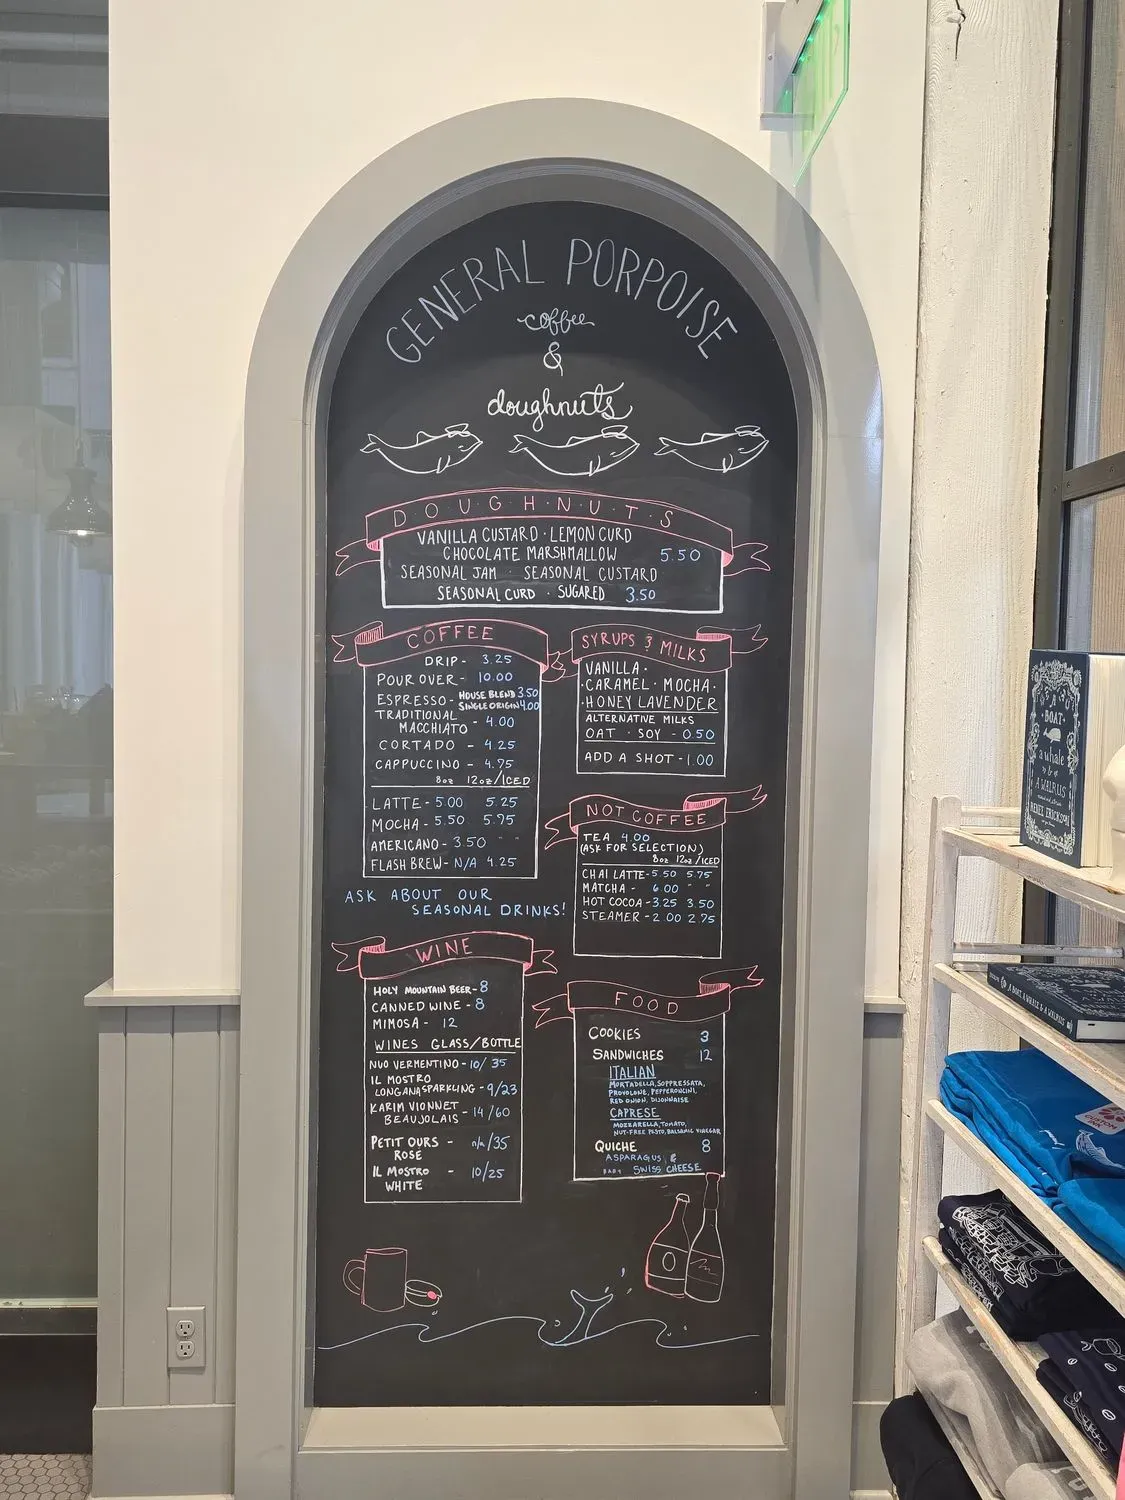 GENERAL PORPOISE
coffee
&
doughnuts
DOUGHNUTS
VANILLA CUSTARD · LEMON CURD
CHOCOLATE MARSHMALLOW 5.50
SEASONAL JAM · SEASONAL CUSTARD
SEASONAL CURD · SUGARED 3.50
COFFEE
DRIP - 3.25
POUR OVER - 10.00
ESPRESSO - HOUSE BLEND 3.50
SINGLE ORIGIN 4.00
TRADITIONAL
MACCHIATO - 4.00
CORTADO - 4.25
CAPPUCCINO - 4.75
8oz 12oz/ICED
LATTE - 5.00 5.25
MOCHA - 5.50 5.95
AMERICANO - 3.50 " "
FLASH BREW - N/A 4.25
ASK ABOUT OUR
SEASONAL DRINKS!
SYRUPS & MILKS
VANILLA ·
· CARAMEL · MOCHA ·
· HONEY LAVENDER
ALTERNATIVE MILKS
OAT · SOY - 0.50
ADD A SHOT - 1.00
NOT COFFEE
TEA 4.00
(ASK FOR SELECTION)
8oz 12oz/ICED
CHAI LATTE - 5.50 5.75
MATCHA - 6.00 " "
HOT COCOA - 3.25 3.50
STEAMER - 2.00 2.75
WINE
HOLY MOUNTAIN BEER - 8
CANNED WINE - 8
MIMOSA - 12
WINES GLASS/BOTTLE
NUO VERMENTINO - 10/35
IL MOSTRO
LONGANA SPARKLING - 9/23
KARIM VIONNET - 14/60
BEAUJOLAIS
PETIT OURS - n/a/35
ROSE
IL MOSTRO - 10/25
WHITE
FOOD
COOKIES 3
SANDWICHES 12
ITALIAN
MORTADELLA, SOPPRESSATA,
PROVOLONE, PEPPERONCINI,
RED ONION, DIJONNAISE
CAPRESE
MOZZARELLA, TOMATO,
NUT-FREE PESTO, BALSAMIC VINEGAR
QUICHE 8
ASPARAGUS &
BABY SWISS CHEESE
A
BOAT
a whale
& a
WALRUS
RENEE ERICKSON
A BOAT, A WHALE & A WALRUS
CUSTOM
INK